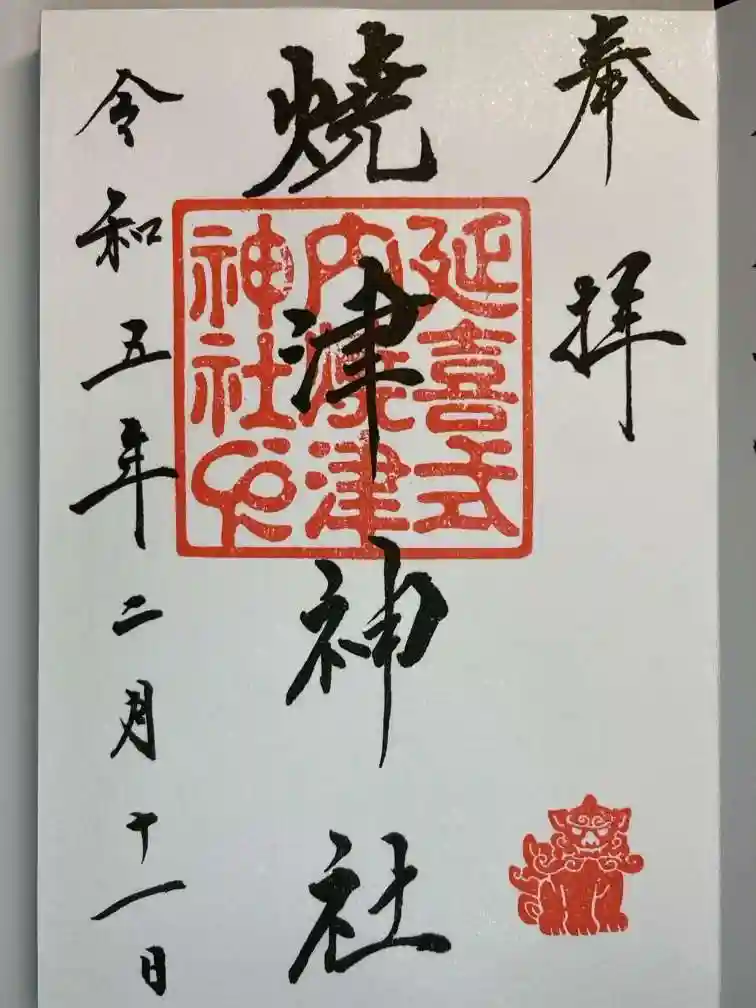 奉拝
焼津神社
延喜式
内焼津
神社印
令和五年二月十一日